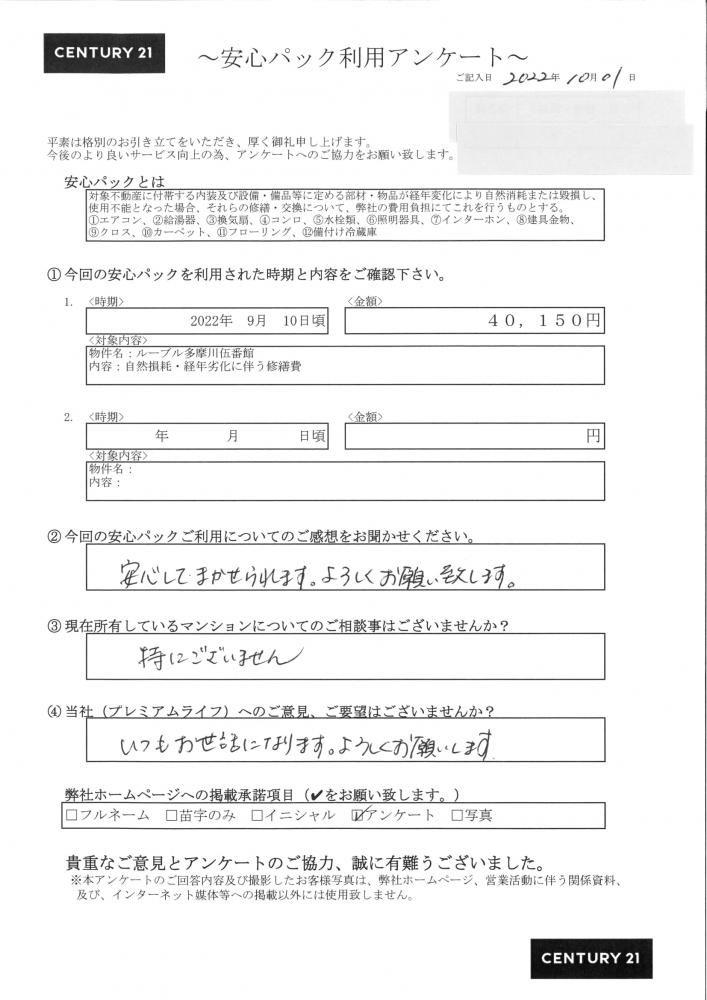 CENTURY 21
～安心パック利用アンケート～
ご記入日 2022年 10月 01日
平素は格別のお引き立てをいただき、厚く御礼申し上げます。
今後のより良いサービス向上の為、アンケートへのご協力をお願い致します。
安心パックとは
対象不動産に付帯する内装及び設備・備品等に定める部材・物品が経年変化により自然消耗または毀損し、
使用不能となった場合、それらの修繕・交換について、弊社の費用負担にてこれを行うものとする。
①エアコン、②給湯器、③換気扇、④コンロ、⑤水栓類、⑥照明器具、⑦インターホン、⑧建具金物、
⑨クロス、⑩カーペット、⑪フローリング、⑫備付け冷蔵庫
①今回の安心パックを利用された時期と内容をご確認下さい。
1. <時期> <金額>
2022年 9月 10日頃 40,150円
<対象内容>
物件名：ルーブル多摩川伍番館
内容：自然損耗・経年劣化に伴う修繕費
2. <時期> <金額>
年 月 日頃 円
<対象内容>
物件名：
内容：
②今回の安心パックご利用についてのご感想をお聞かせください。
安心してまかせられます。よろしくお願い致します。
③現在所有しているマンションについてのご相談事はございませんか？
特にございません
④当社（プレミアムライフ）へのご意見、ご要望はございませんか？
いつもお世話になります。よろしくお願いします
弊社ホームページへの掲載承諾項目（✔をお願い致します。）
□フルネーム □苗字のみ □イニシャル ☑アンケート □写真
貴重なご意見とアンケートのご協力、誠に有難うございました。
※本アンケートのご回答内容及び撮影したお客様写真は、弊社ホームページ、営業活動に伴う関係資料、
及び、インターネット媒体等への掲載以外には使用致しません。
CENTURY 21